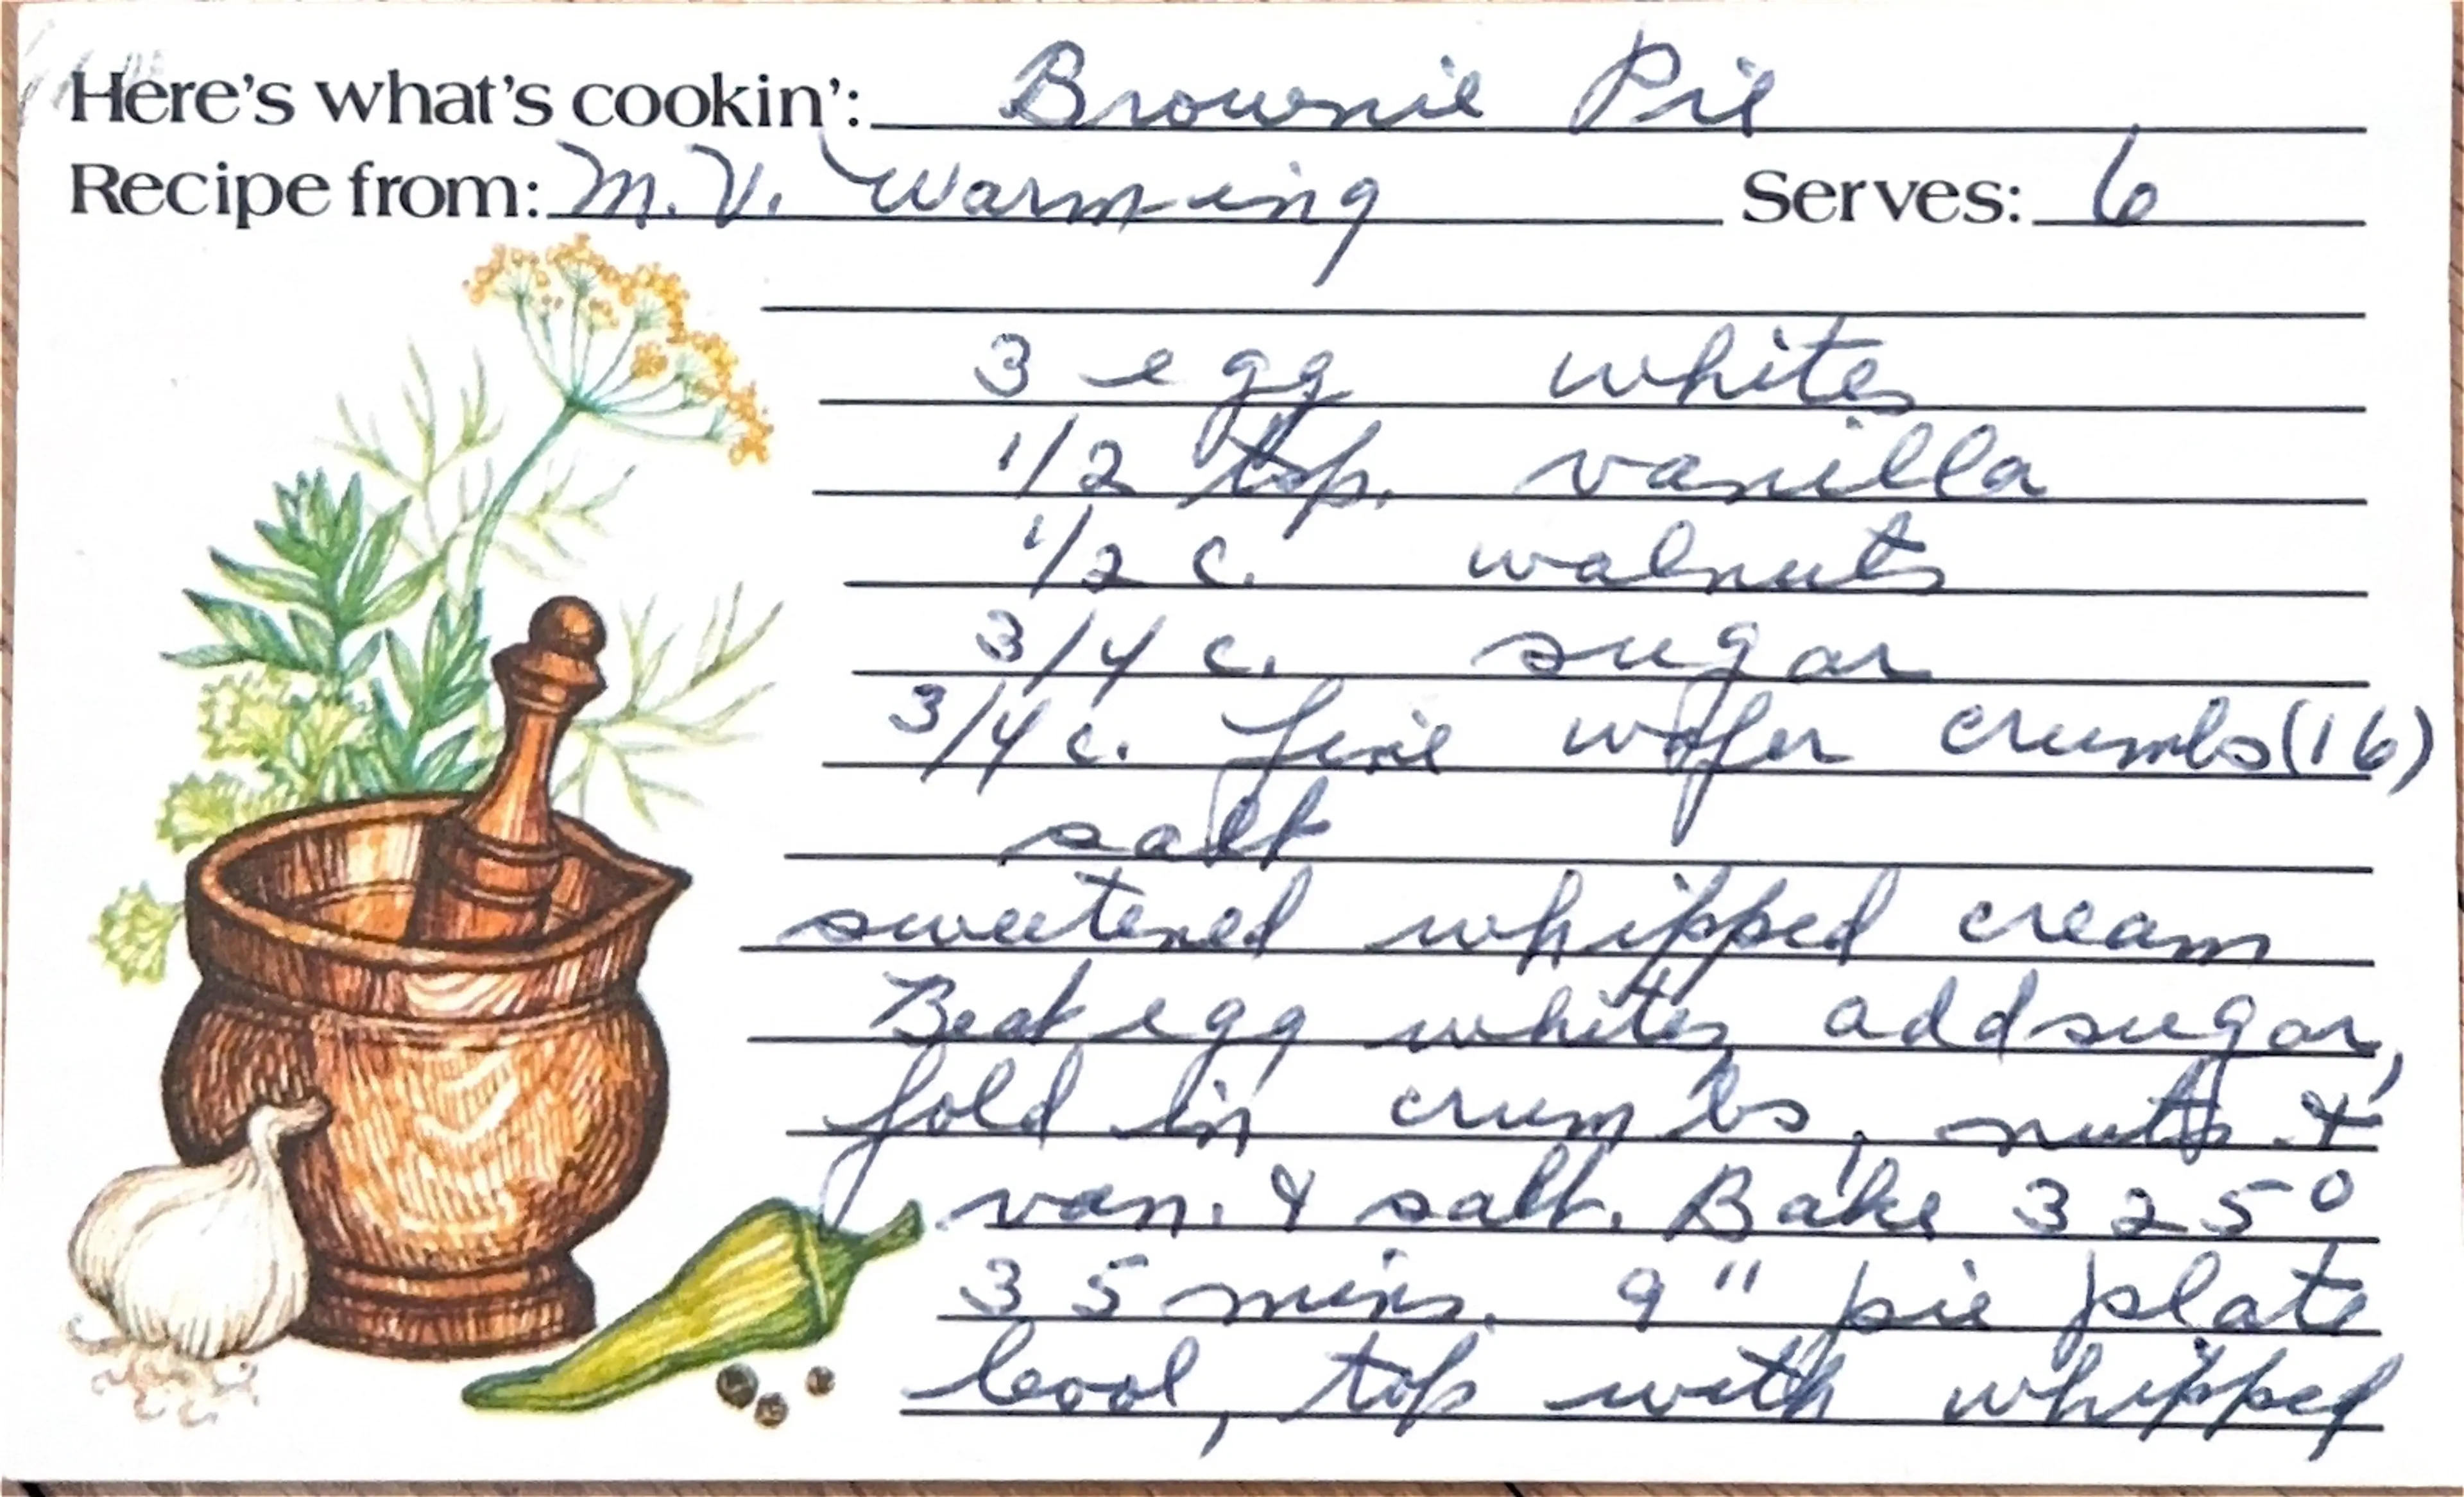 Here's what's cookin': Brownie Pie
Recipe from: M.V. Warming Serves: 6
3 egg whites
1/2 tsp. vanilla
1/2 c. walnuts
3/4 c. sugar
3/4 c. fine wafer crumbs (16)
salt
sweetened whipped cream
Beat egg whites, add sugar,
fold in crumbs, nuts &
van. & salt. Bake 325°
35 mins. 9" pie plate
Cool, top with whipped